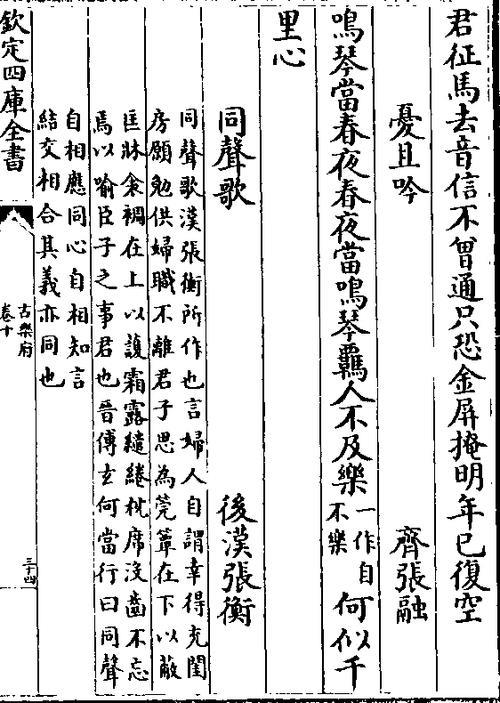 君征馬去音信不曾通只恐金屏掩明年已復空
憂且吟 齊張融
鳴琴當春夜春夜當鳴琴羈人不及樂一作自不樂何似千
里心
同聲歌 後漢張衡
同聲歌漢張衡所作也言婦人自謂幸得充閨
房願勉供婦職不離君子思為莞簟在下以蔽
匡牀衾裯在上以護霜露繾綣枕席沒齒不忘
焉以喻臣子之事君也晉傅玄何當行曰同聲
自相應同心自相知言
結交相合其義亦同也
欽定四庫全書
古樂府
卷十
三十四